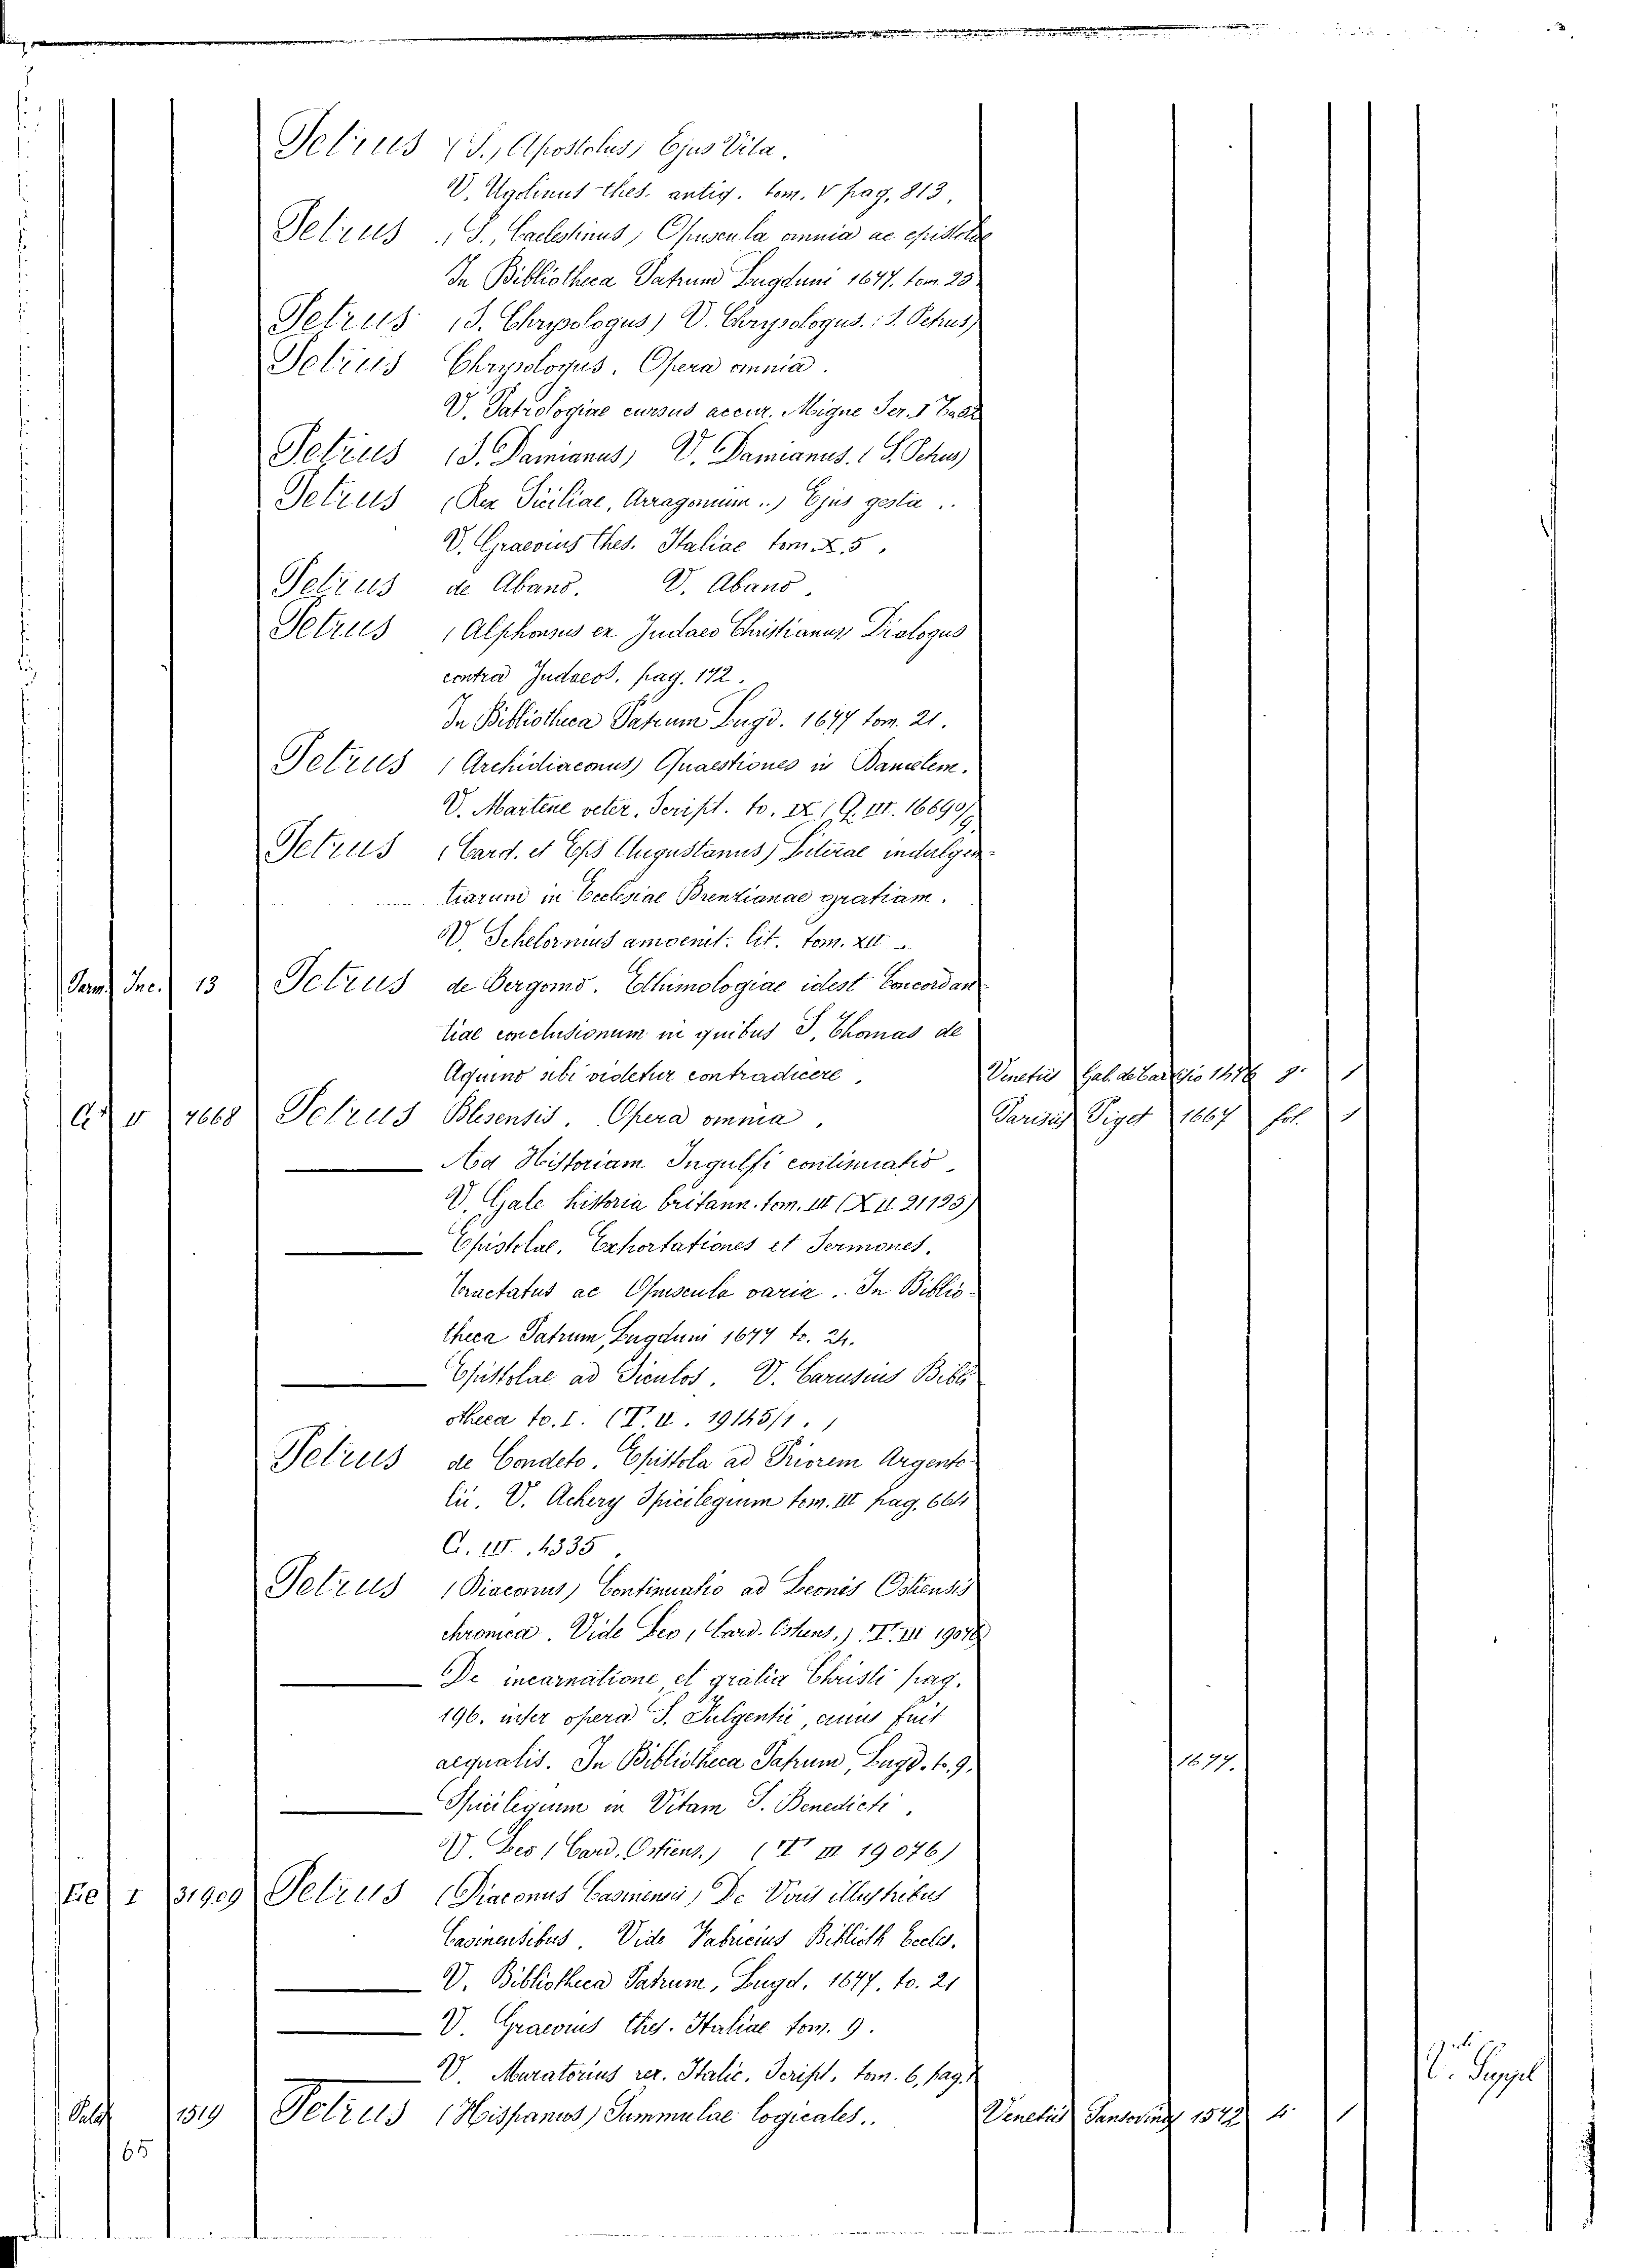 Petrus (S., Apostolus) Ejus Vita.
V. Ugolinus thes. antiq. tom. V pag. 813.
Petrus (S., Caelestinus) Opuscula omnia ac epistolae
In Bibliotheca Patrum Lugduni 1677. tom 25.
Petrus (S. Chrysologus) V. Chrysologus. (S. Petrus)
Petrus Chrysologus. Opera omnia.
V. Patrologiae cursus accur. Migne Ser. I
Petrus (S. Damianus) V. Damianus. (S. Petrus)
Petrus (Rex Siciliae, Arragonum..) Ejus gesta..
V. Graevius thes. Italiae tom. X. 5.
Petrus de Abano. V. Abano.
Petrus (Alphonsus ex Judaeo Christianus) Dialogus
contra Judaeos. pag. 172.
In Bibliotheca Patrum Lugd. 1677 tom. 21.
Petrus (Archidiaconus) Quaestiones in Danielem.
V. Martene veter. Script. to. IX. (Q. III. 16690/9.
Petrus (Card. et Eps Augustanus) Literae indulgen-
tiarum in Ecclesiae Brenzianae gratiam.
V. Schelornius amoenit. lit. tom. XII.
Parm. Inc. 13 Petrus de Bergomo. Ethimologiae idest Concordan
tiae conclusionum in quibus S. Thomas de
Aquino sibi videtur contradicere. Venetiis Gab. de Grassio 1476 8° 1
A V 7668 Petrus Blesensis. Opera omnia. Parisiis Piget 1667 fol. 1
Ad Historiam Ingulfi continuatio.
V. Gale historia britann. tom. III (X II 21123)
Epistolae, Exhortationes et Sermones.
Tractatus ac Opuscula varia.. In Biblio-
theca Patrum, Lugduni 1677 to. 24.
Epistolae ad Siculos. V. Carusius Bibli
otheca to. I. (T. II. 19145/1.)
Petrus de Condeto. Epistola ad Priorem Argento-
lii. V. Achery Spicilegium tom. III pag. 664
C. III. 4335.
Petrus (Diaconus) Continuatio ad Leonis Ostiensis
chronica. Vide Leo, (Card. Ostiens.) T. III 19076
De incarnatione et gratia Christi pag.
196. inter opera S. Fulgentii, cuius fuit
aequalis. In Bibliotheca Patrum, Lugd. to. 9. 1677.
Spicilegium in Vitam S. Benedicti.
V. Leo (Card. Ostiens.) (T III 19076)
I 31909 Petrus (Diaconus Casinensis) De Viris illustribus
Casinensibus. Vide Fabricius Biblioth Eccles.
V. Bibliotheca Patrum, Lugd. 1677. to. 21
V. Graevius thes. Italiae tom. 9.
V. Muratorius rer. Italic. Script. tom. 6, pag. 1
Palat 1519 Petrus (Hispanus) Summulae logicales.. Venetiis Sansovinus 1572 4° 1
65
V. Suppl